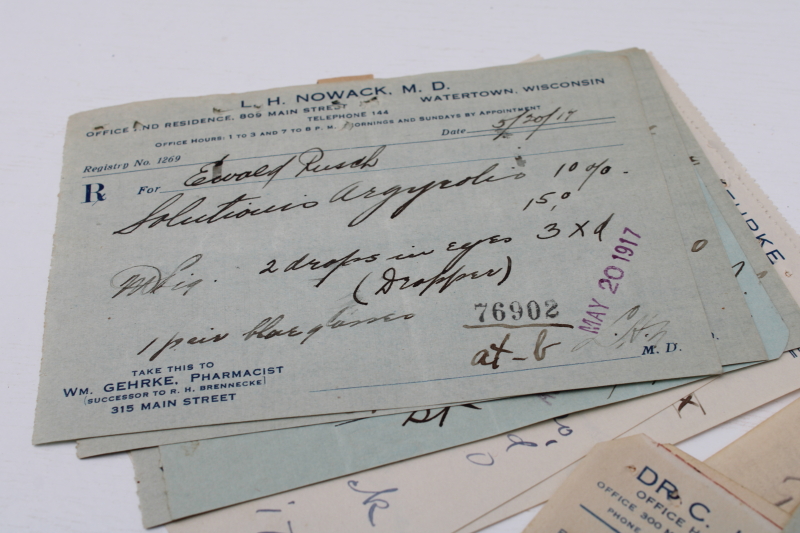 L. H. NOWACK, M. D.
OFFICE AND RESIDENCE, 809 MAIN STREET WATERTOWN, WISCONSIN
TELEPHONE 144
OFFICE HOURS: 1 TO 3 AND 7 TO 8 P. M. MORNINGS AND SUNDAYS BY APPOINTMENT
Registry No. 1269 Date 5/20/17
R For Ewald Pusch
Solutionis Argyrolis 10%.
15.0
M Sig. 2 drops in eyes 3 X d
(Dropper)
1 pair blue glasses
76902
MAY 20 1917
at-b
M. D.
TAKE THIS TO
WM. GEHRKE, PHARMACIST
(SUCCESSOR TO R. H. BRENNECKE)
315 MAIN STREET
EHRKE
DR. C.
OFFICE H
OFFICE 300 M
PHONE